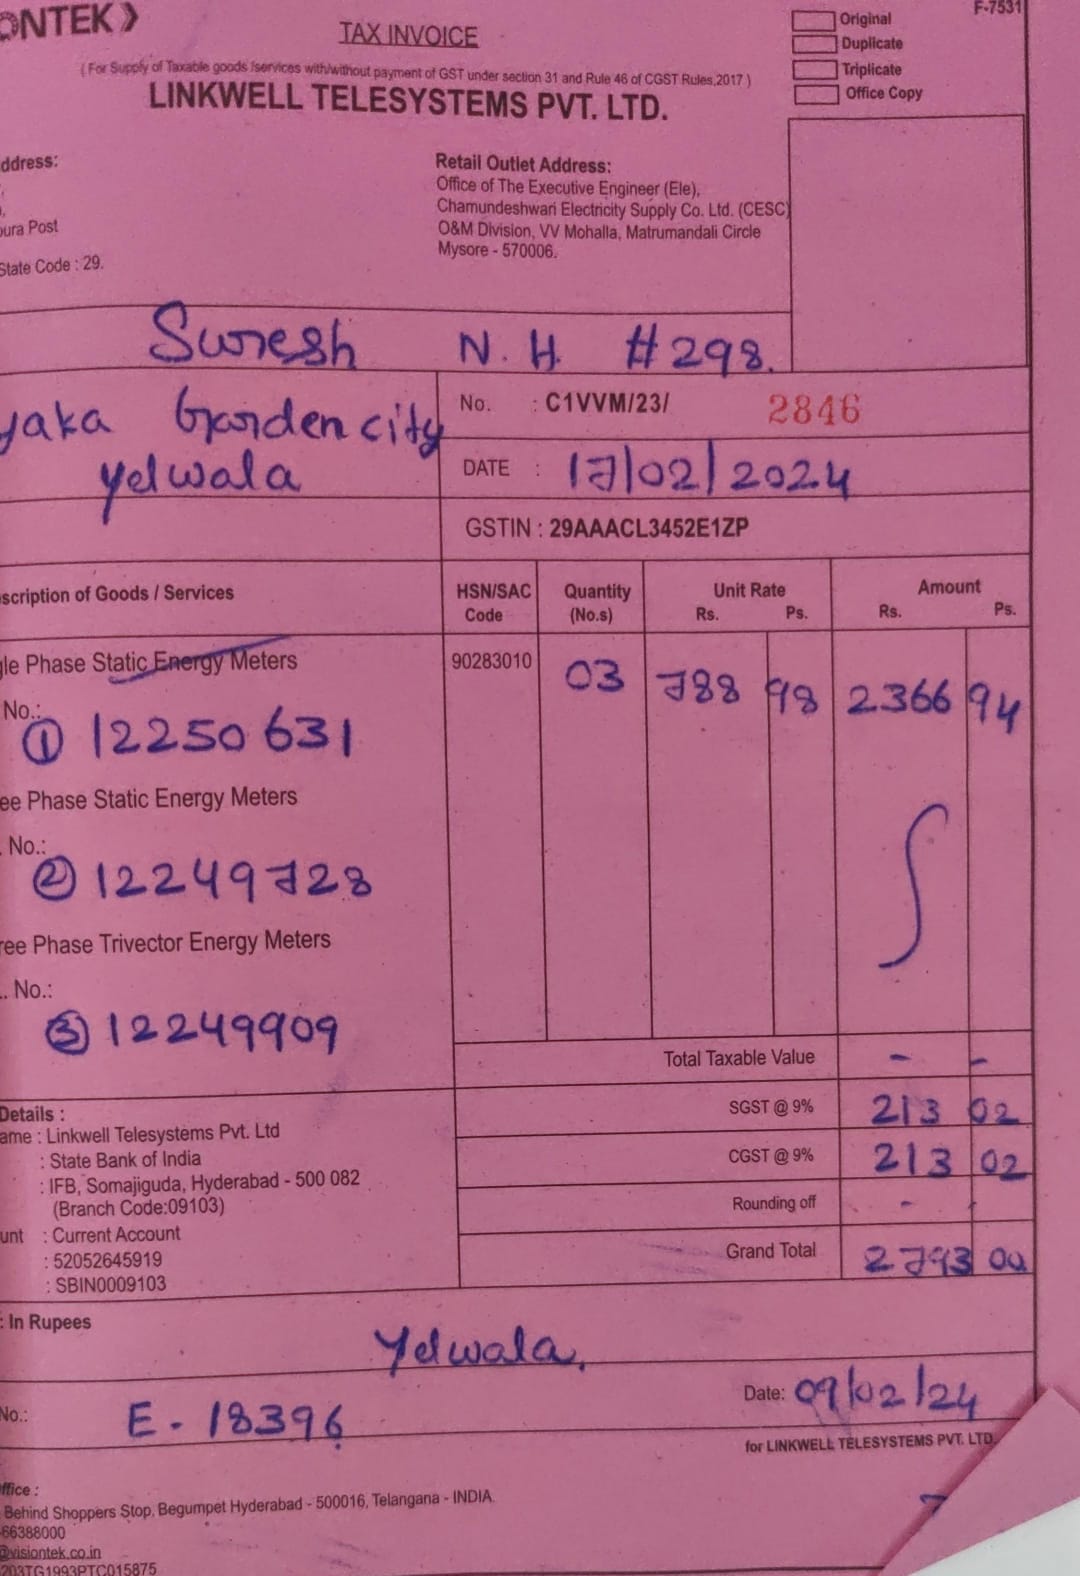 ONTEK
TAX INVOICE
F-7531
Original
Duplicate
Triplicate
Office Copy
( For Supply of Taxable goods /services with/without payment of GST under section 31 and Rule 46 of CGST Rules,2017 )
LINKWELL TELESYSTEMS PVT. LTD.
ddress:
pura Post
State Code : 29.
Retail Outlet Address:
Office of The Executive Engineer (Ele),
Chamundeshwari Electricity Supply Co. Ltd. (CESC)
O&M Division, VV Mohalla, Matrumandali Circle
Mysore - 570006.
Suresh N. H. #298.
yaka Garden city
yelwala
No. : C1VVM/23/ 2846
DATE : 17/02/2024
GSTIN : 29AAACL3452E1ZP
scription of Goods / Services HSN/SAC Code Quantity (No.s) Unit Rate Rs. Ps. Amount Rs. Ps.
gle Phase Static Energy Meters 90283010 03 788 98 2366 94
No.:
① 12250631
ee Phase Static Energy Meters
. No.:
② 12249728
ree Phase Trivector Energy Meters
.. No.:
③ 12249909
Total Taxable Value - -
SGST @ 9% 213 02
CGST @ 9% 213 02
Rounding off -
Grand Total 2793 00
Details :
ame : Linkwell Telesystems Pvt. Ltd
: State Bank of India
: IFB, Somajiguda, Hyderabad - 500 082
(Branch Code:09103)
unt : Current Account
: 52052645919
: SBIN0009103
: In Rupees
Yelwala,
No.: E - 18396
Date: 09/02/24
for LINKWELL TELESYSTEMS PVT. LTD.
ffice :
Behind Shoppers Stop, Begumpet Hyderabad - 500016, Telangana - INDIA.
66388000
@visiontek.co.in
203TG1993PTC015875